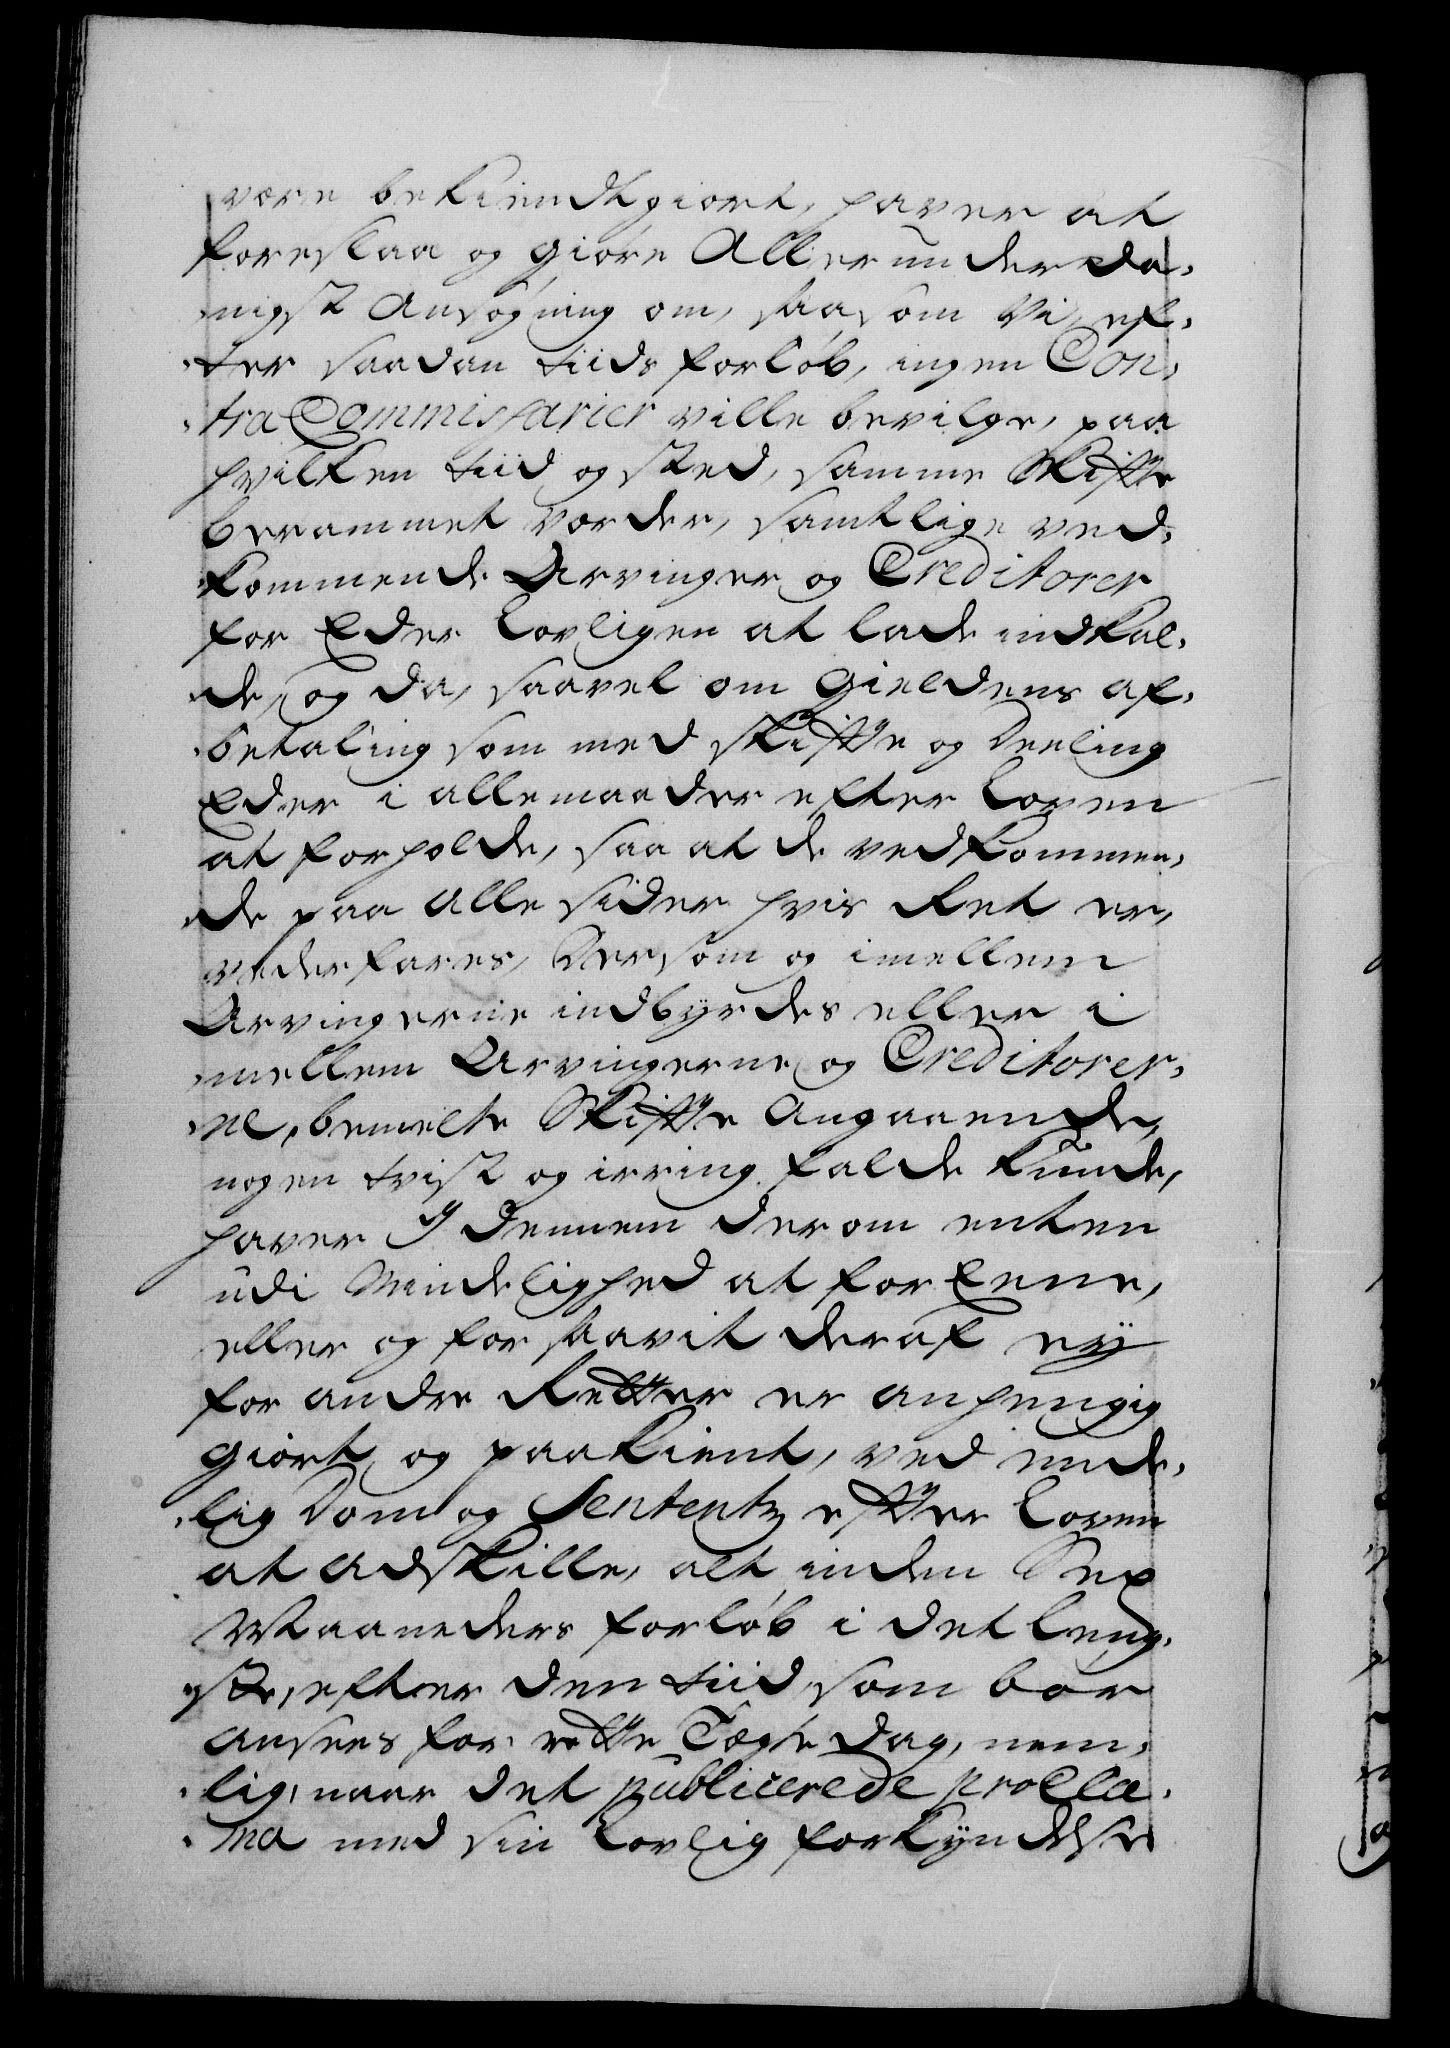 være bekiendtgiort, haver at
foreslaa og giøre Allerunderda,
nigst Ansøgning om, saasom Vi, ef,
,ter saadan tiids forløb, ingen Con,
,tra Commissarier ville bevilge, paa
hvilken tiid og sted, samme Skiffte
berammet vorder, samtlige ved,
,kommende Arvinger og Creditorer
for Eder lovligen at lade indkal,
,de, og da, saavel om Gieldens af,
,betaling som med skiffte og Deeling
Eder i allemaader efter Loven
at forholde, saa at de vedkommen,
,de paa alle sider hvis Ret er,
vederfares, Dersom og imellem
Arvingerne indbyrdes eller i
,mellem Arvingerne og Creditorer,
,ne, bemelte Skiffte Angaaende,
nogen tvist og irring falde kunde,
haver I dennem derom enten
udi Mindelighed at foreene,
eller og for saavit deraf ey
for andre Retter er anhengig
giort og paakient, ved ende,
,lig Dom og Sententz effter Loven
at adskille, alt inden Sex
Maaneders forløb i det leng,
,ste, efter den tiid, som bør
ansees for rette Tægte dag, nem,
,lig, naar det publicerede procla,
,ma med sin lovlig forkyndelse